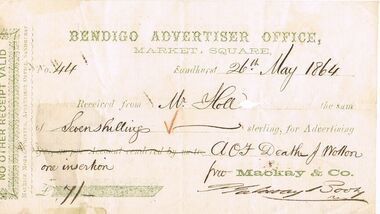 BENDIGO ADVERTISER OFFICE,
MARKET SQUARE,
No. 44 Sandhurst 26th May 1864
Received from Mr Holl the sum
of Seven shillings sterling, for Advertising
A O F Death J Wotton
one insertion pro Mackay & Co.
£ 7/-
NO OTHER RECEIPT VALID